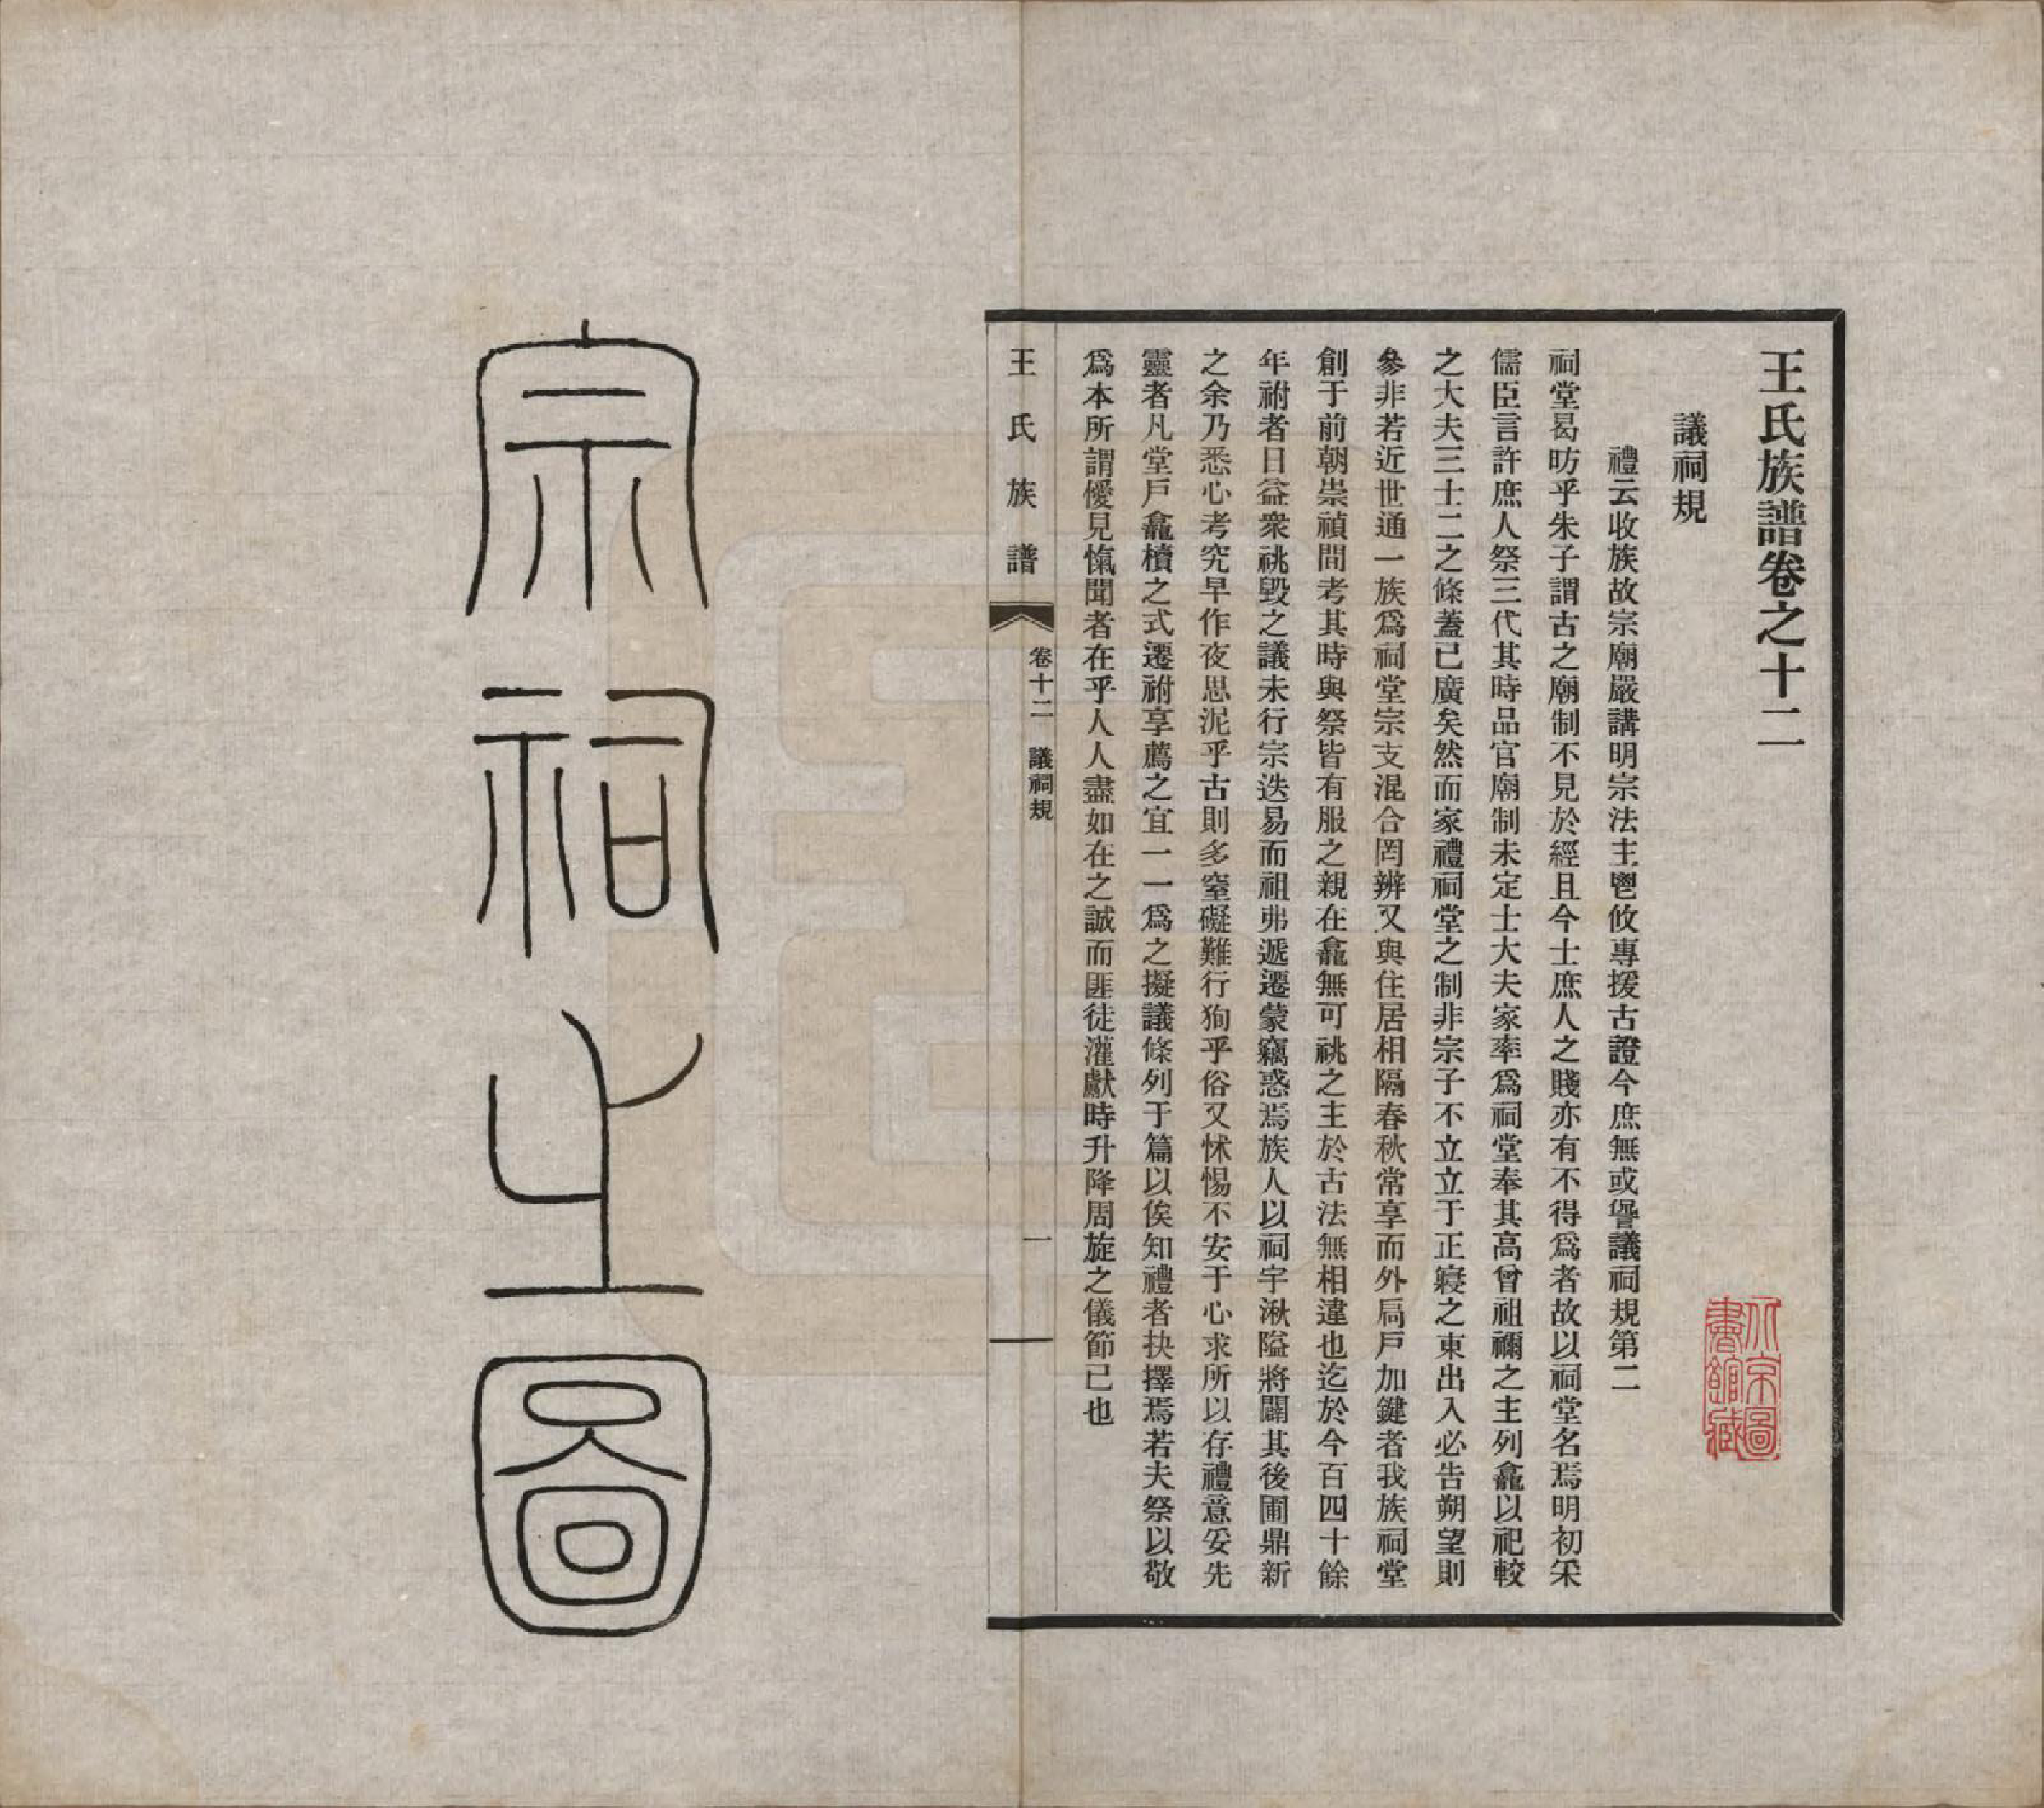 王氏族譜卷之十二
議祠規
禮云收族故宗廟嚴講明宗法主鬯攸專援古證今庶無或諐議祠規第二
祠堂曷昉乎朱子謂古之廟制不見於經且今士庶人之賤亦有不得爲者故以祠堂名焉明初采
儒臣言許庶人祭三代其時品官廟制未定士大夫家率爲祠堂奉其高曾祖禰之主列龕以祀較
之大夫三士二之條蓋已廣矣然而家禮祠堂之制非宗子不立立于正寢之東出入必告朔望則
參非若近世通一族爲祠堂宗支混合罔辨又與住居相隔春秋常享而外扃戶加鍵者我族祠堂
創于前朝崇禎間考其時與祭皆有服之親在龕無可祧之主於古法無相違也迄於今百四十餘
年祔者日益衆祧毀之議未行宗迭易而祖弗遞遷蒙竊惑焉族人以祠宇湫隘將闢其後圃鼎新
之余乃悉心考究早作夜思泥乎古則多窒礙難行狥乎俗又怵惕不安于心求所以存禮意妥先
靈者凡堂戶龕櫝之式遷祔享薦之宜一一爲之擬議條列于篇以俟知禮者抉擇焉若夫祭以敬
爲本所謂僾見愾聞者在乎人人盡如在之誠而匪徒灌獻時升降周旋之儀節已也
王氏族譜 卷十二 議祠規 一
北京圖書館藏
宗祠之圖